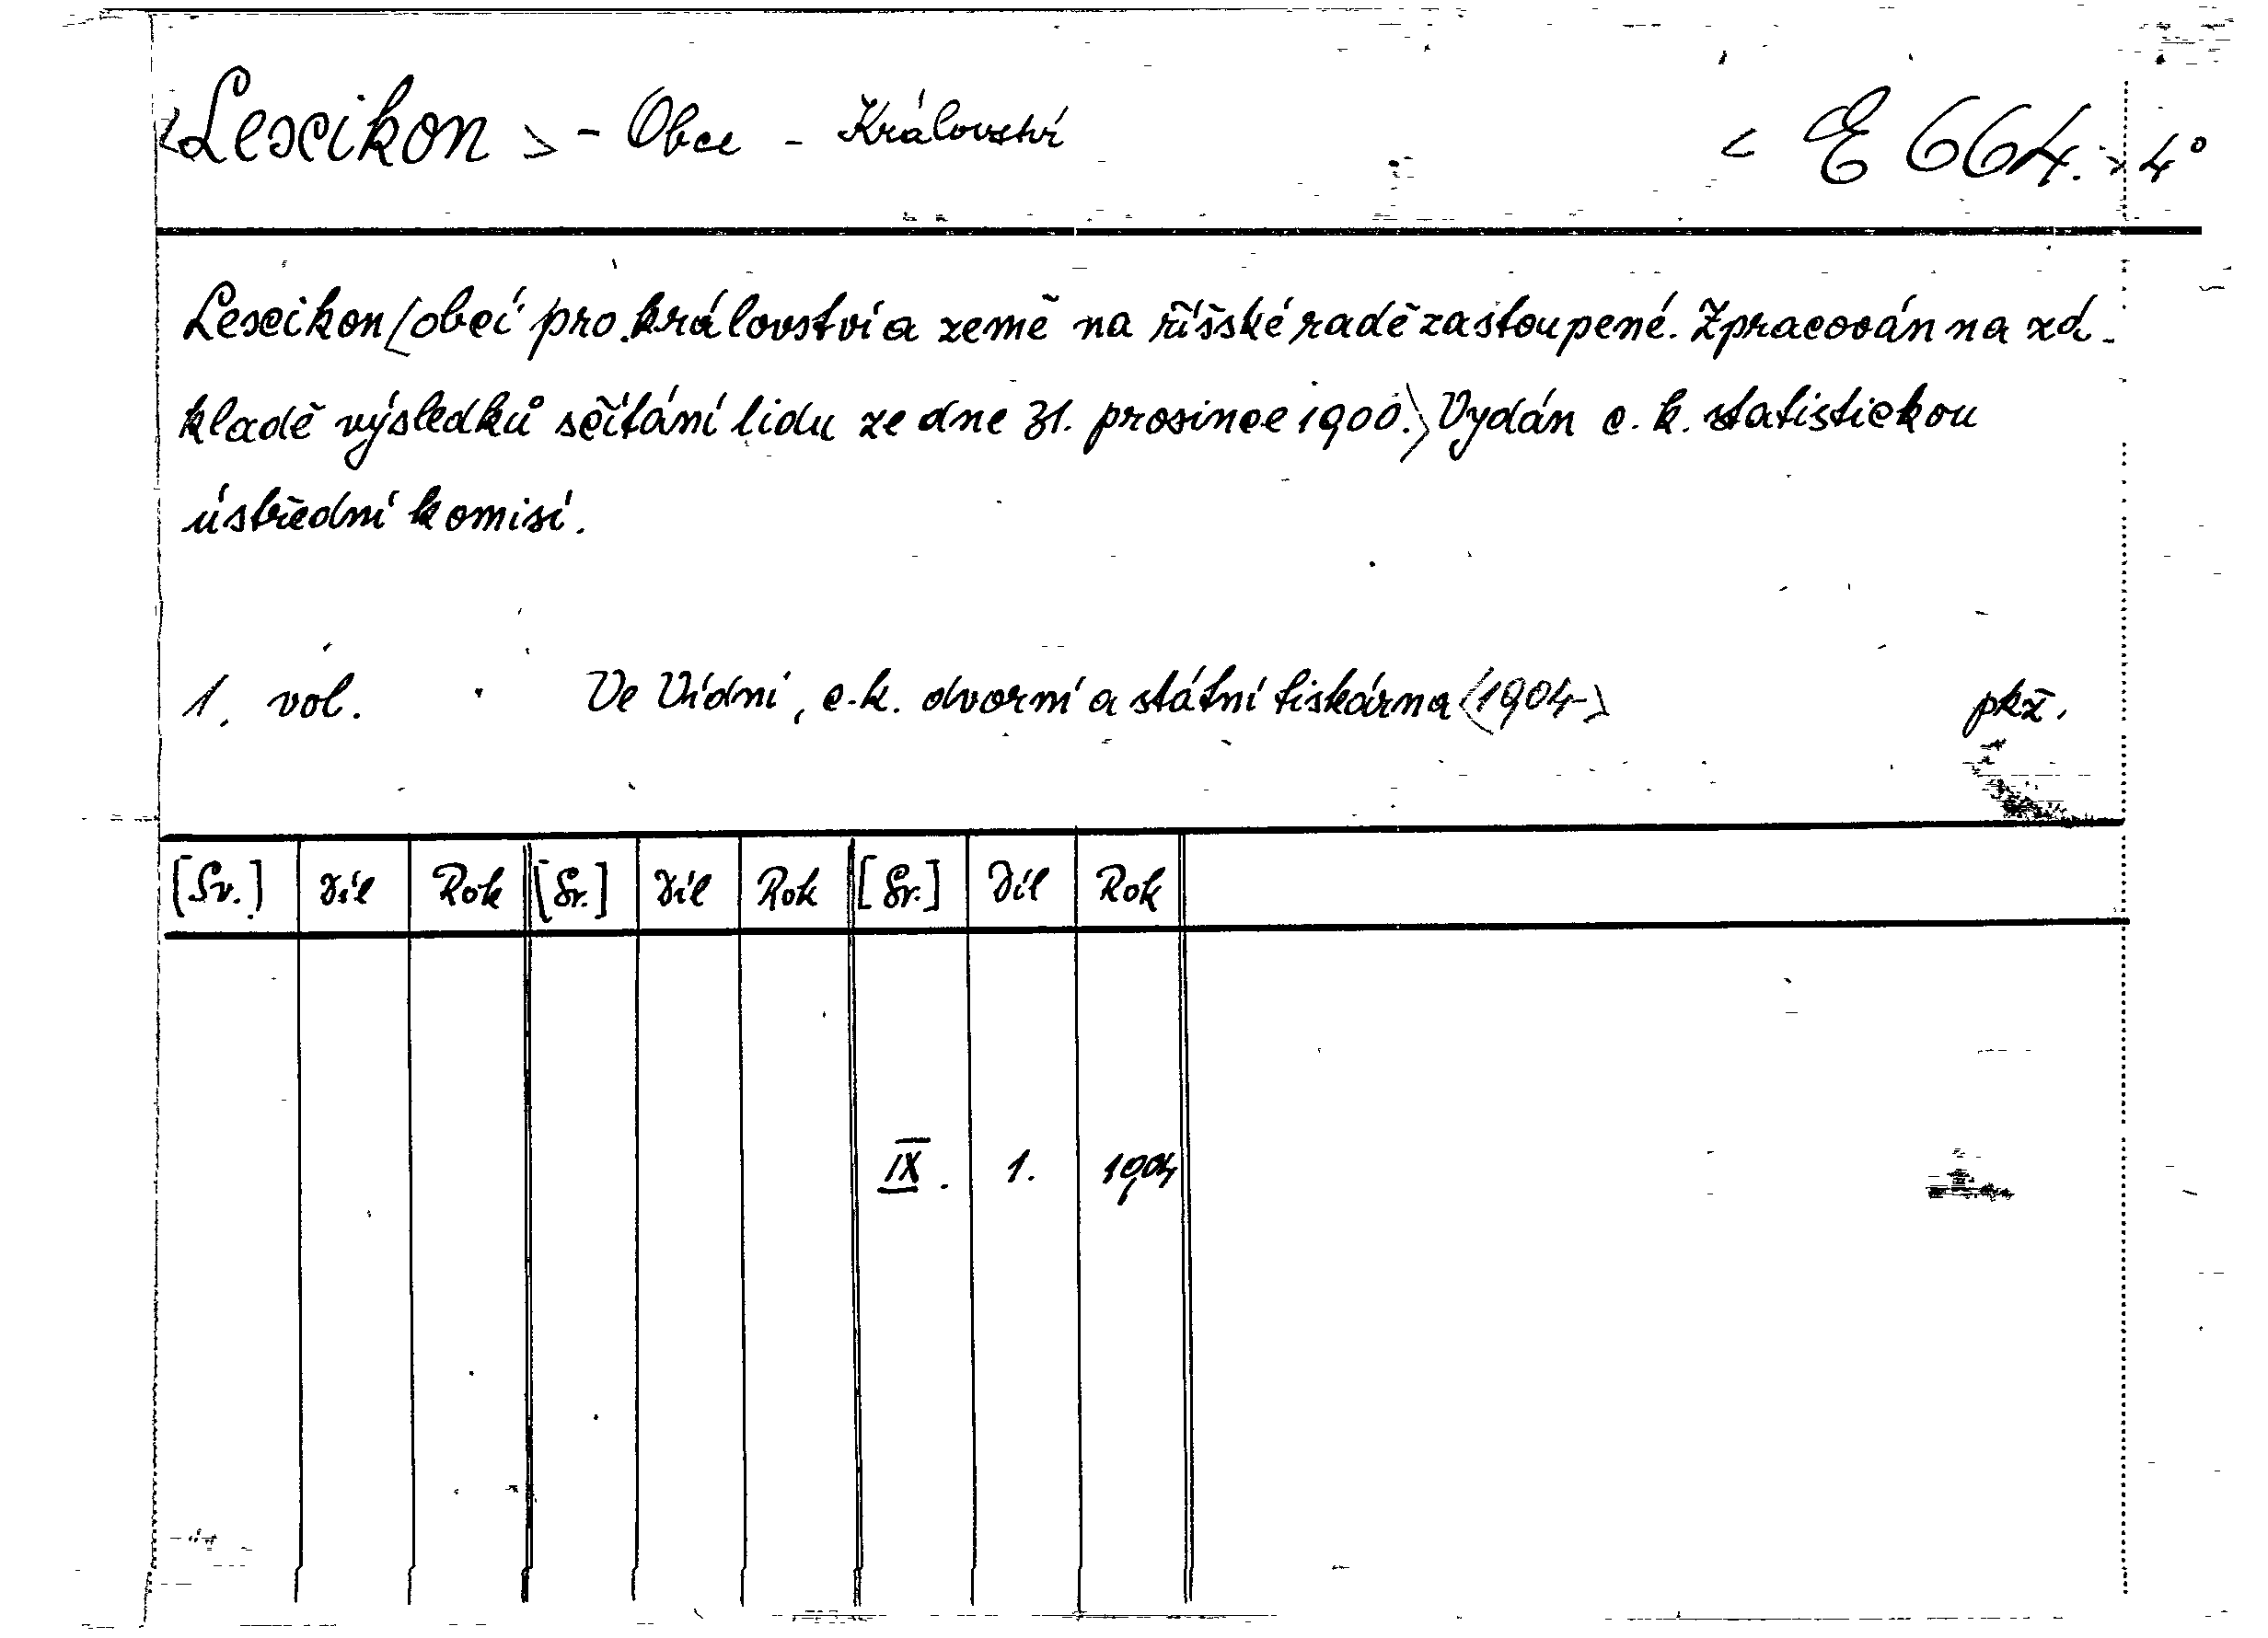 <Lexikon> - Obce - Království < E 664. > 4°
Lexikon <obcí pro království a země na říšské radě zastoupené. Zpracován na zá-
kladě výsledků sčítání lidu ze dne 31. prosince 1900.> Vydán c. k. statistickou
ústřední komisí.
1. vol. Ve Vídni, c. k. dvorní a státní tiskárna <1904-> pkž.
[Sv.] Díl Rok [Sv.] Díl Rok [Sv.] Díl Rok
IX. 1. 1904